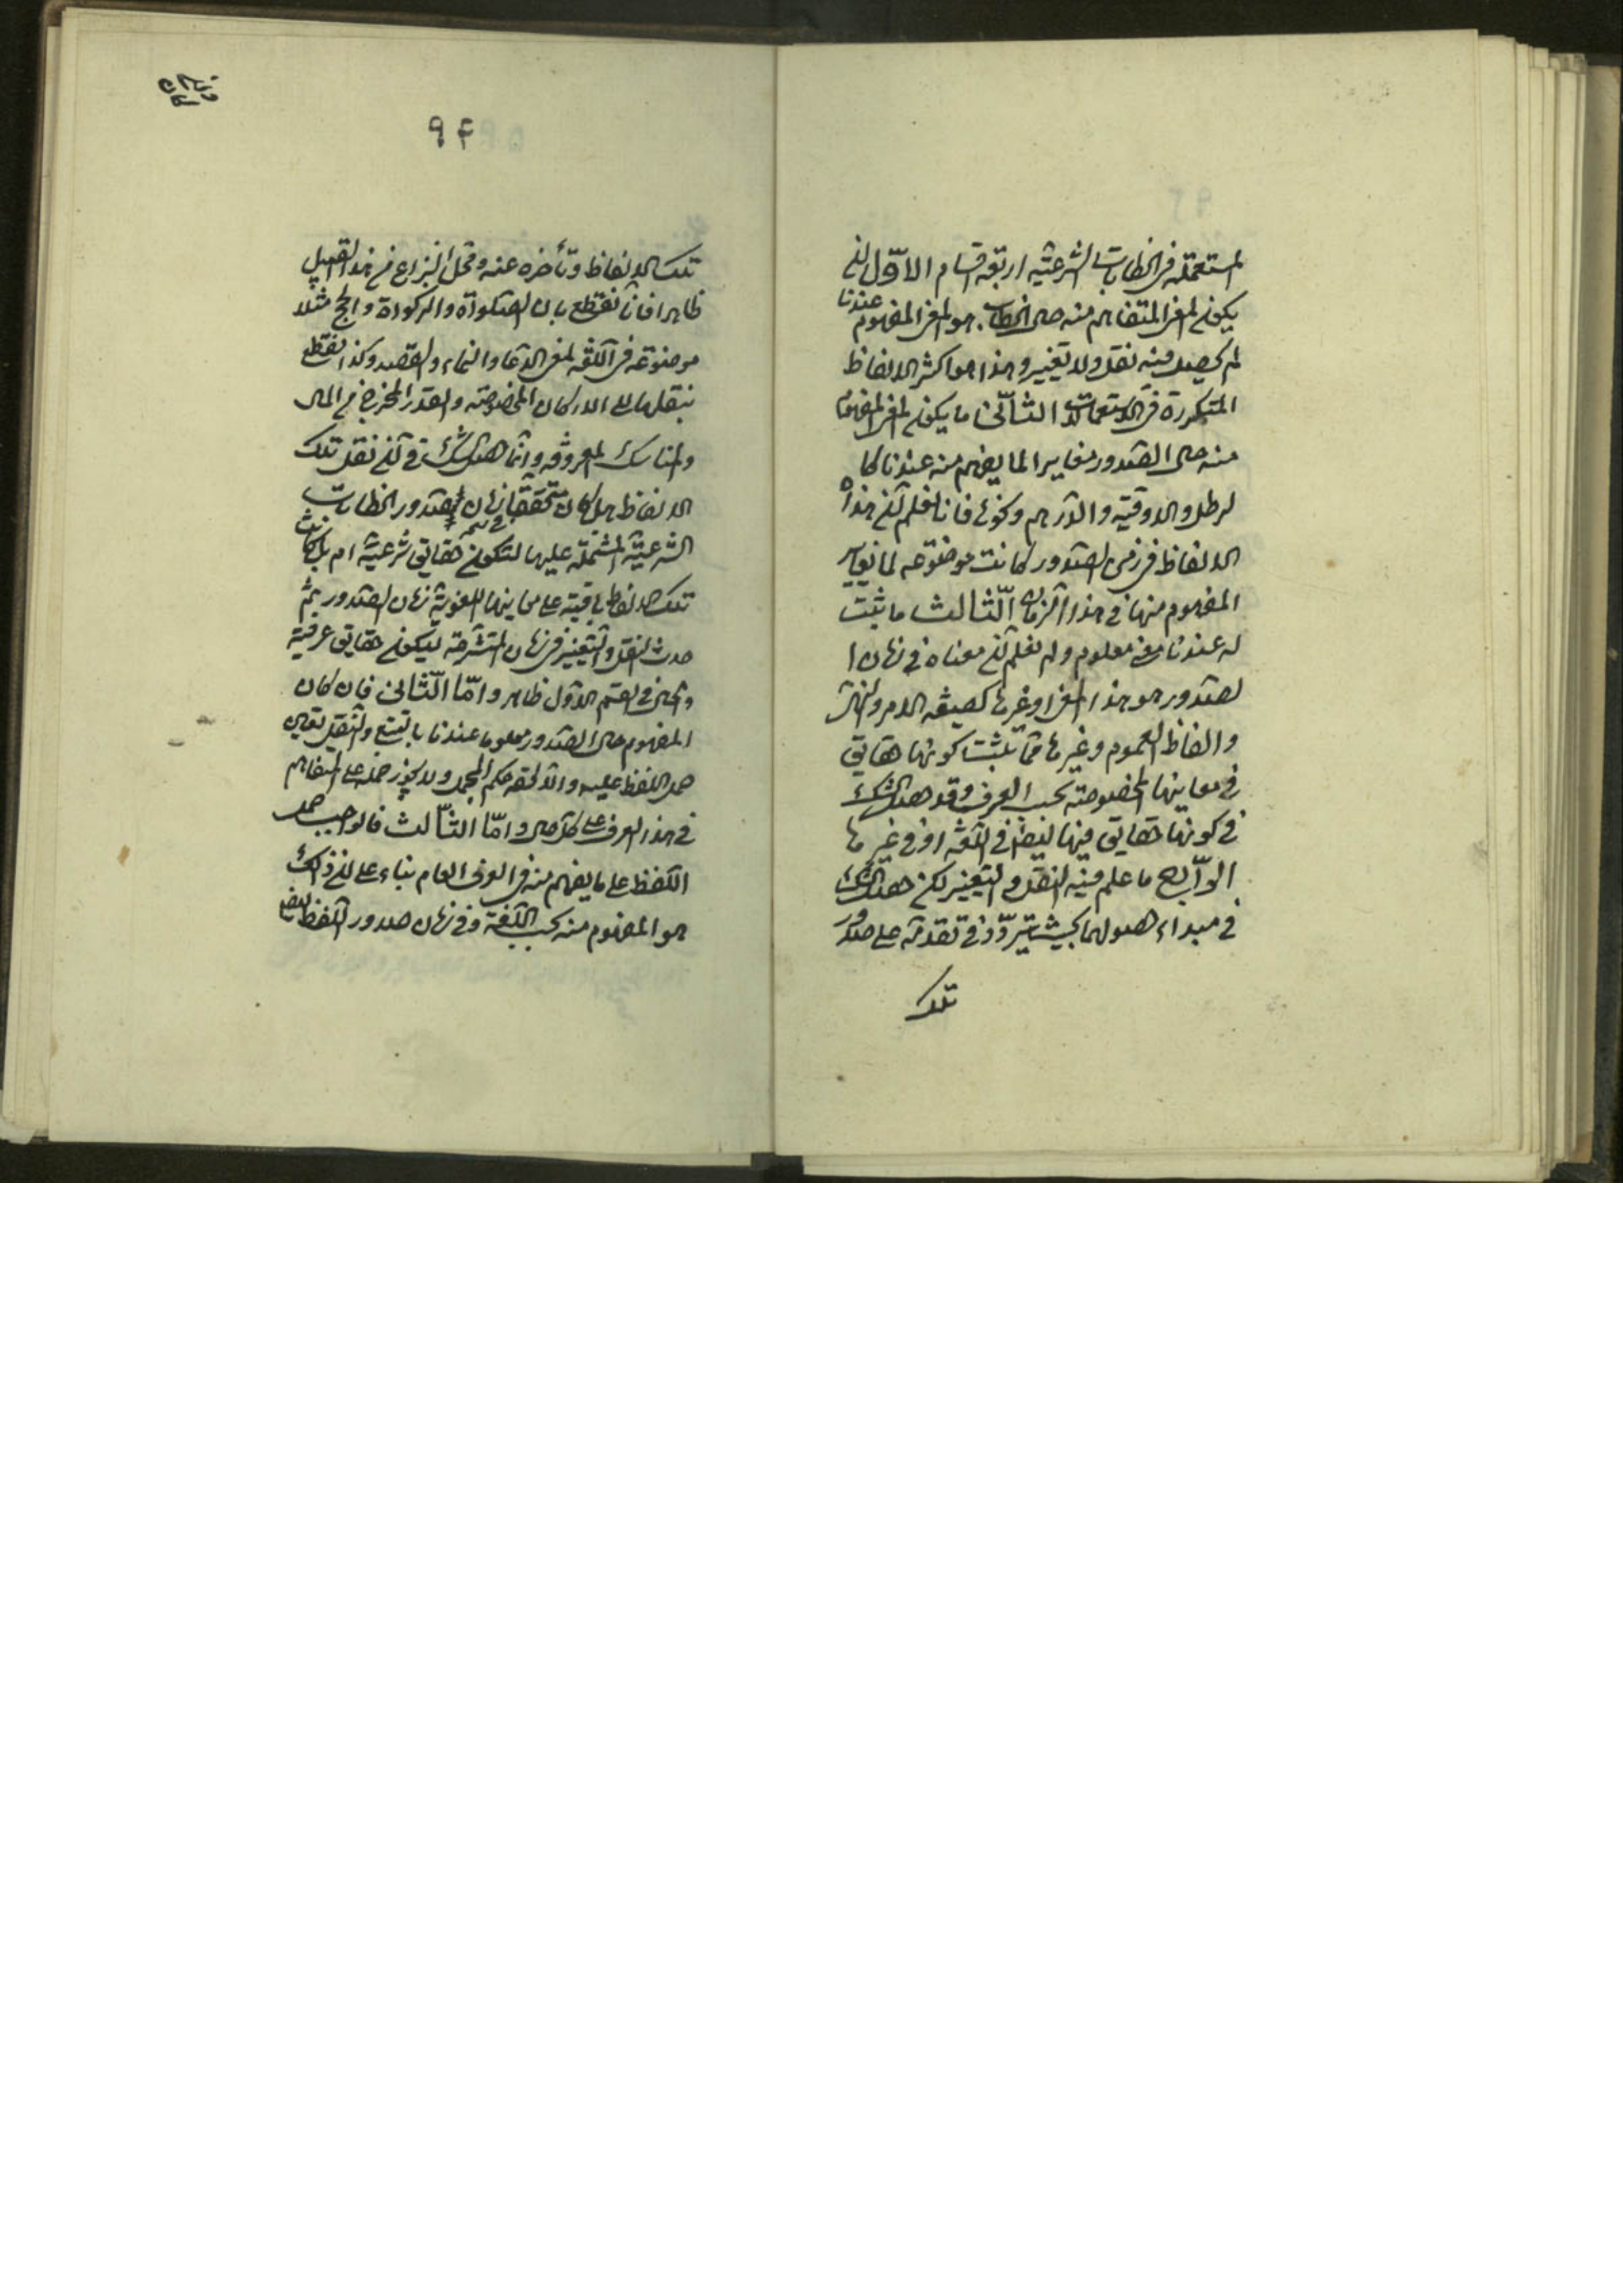 المستعملة فى الخطابات الشرعيّة اربعة اقسام الاوّل ان
يكون المعنى المتفاهم منه حال الخطاب هو المعنى المفهوم عندنا
لم يحصل فيه نقل ولا تغيير وهذا هو اكثر الالفاظ
المتكررة فى الاستعمالات الثانى ما يكون المعنى المفهوم
منه حال الصّدور مغايرا لما يفهم منه عندنا كا
لرطل والاوقيّه والدّرهم ونحوها فانا نعلم انّ هذه
الالفاظ فى زمن الصّدور كانت موضوعه لما يغاير
المفهوم منها فى هذا الزمان الثّالث ما ثبت
له عندنا معنى معلوم ولم نعلم انّ معناه فى زمان ا
لصّدور هو هذا المعنى او غيره كصيغه الامر والنهى
والفاظ العموم وغيرها ممّا ثبت كونها حقايق
فى معاينها المخصوصة بحسب العرف وقد حصل الشك
فى كونها حقايق فيها ايضا فى اللّغه او فى غيرها
الرّابع ما علم فيه النقل والتغيير لكن حصل الشك
فى مبداء حصولهما بحيث يتردّد فى تقدمه على صدور
تلك
94
تلك الالفاظ وتأخره عنه ومحلّ النزاع من هذا القبيل
ظاهرا فانّا نقطع بان الصّلوة والزكوة والحج مثلا
موضوعة فى اللّغه لمعنى الدّعا والنماء والقصد وكذا نقطع
بنقلها الى الاركان المخصوصة والقدر المخرج من المال
والمناسك المعروفه وانّما حصل الشك فى انّ نقل تلك
الالفاظ هل كان متحققا زمان صدور الخطابات
الشرعيّة المشتملة عليها لتكون حقايق شرعيّة ام بل كانت
تلك الالفاظ باقية على معاينها اللغوية زمان الصّدور ثم
حدث النقل والتّغيير فى زمان المتشرعة ليكون حقايق عرفية
والحال فى القسم الاوّل ظاهر وامّا الثّانى فان كان
المفهوم حال الصّدور معلوما عندنا بالتتبع والنّقل تعين
حمل اللفظ عليه والّا لحقه حكم المجمل ولا يجوز حمله على المتفاهم
فى هذا العرف على كل حال وامّا الثّالث فالواجب حمل
اللّفظ على ما يفهم منه فى العرف العام بناء على ان ذلك
هو المفهوم منه بحسب اللّغة وفى زمان صدور اللّفظ ايضا